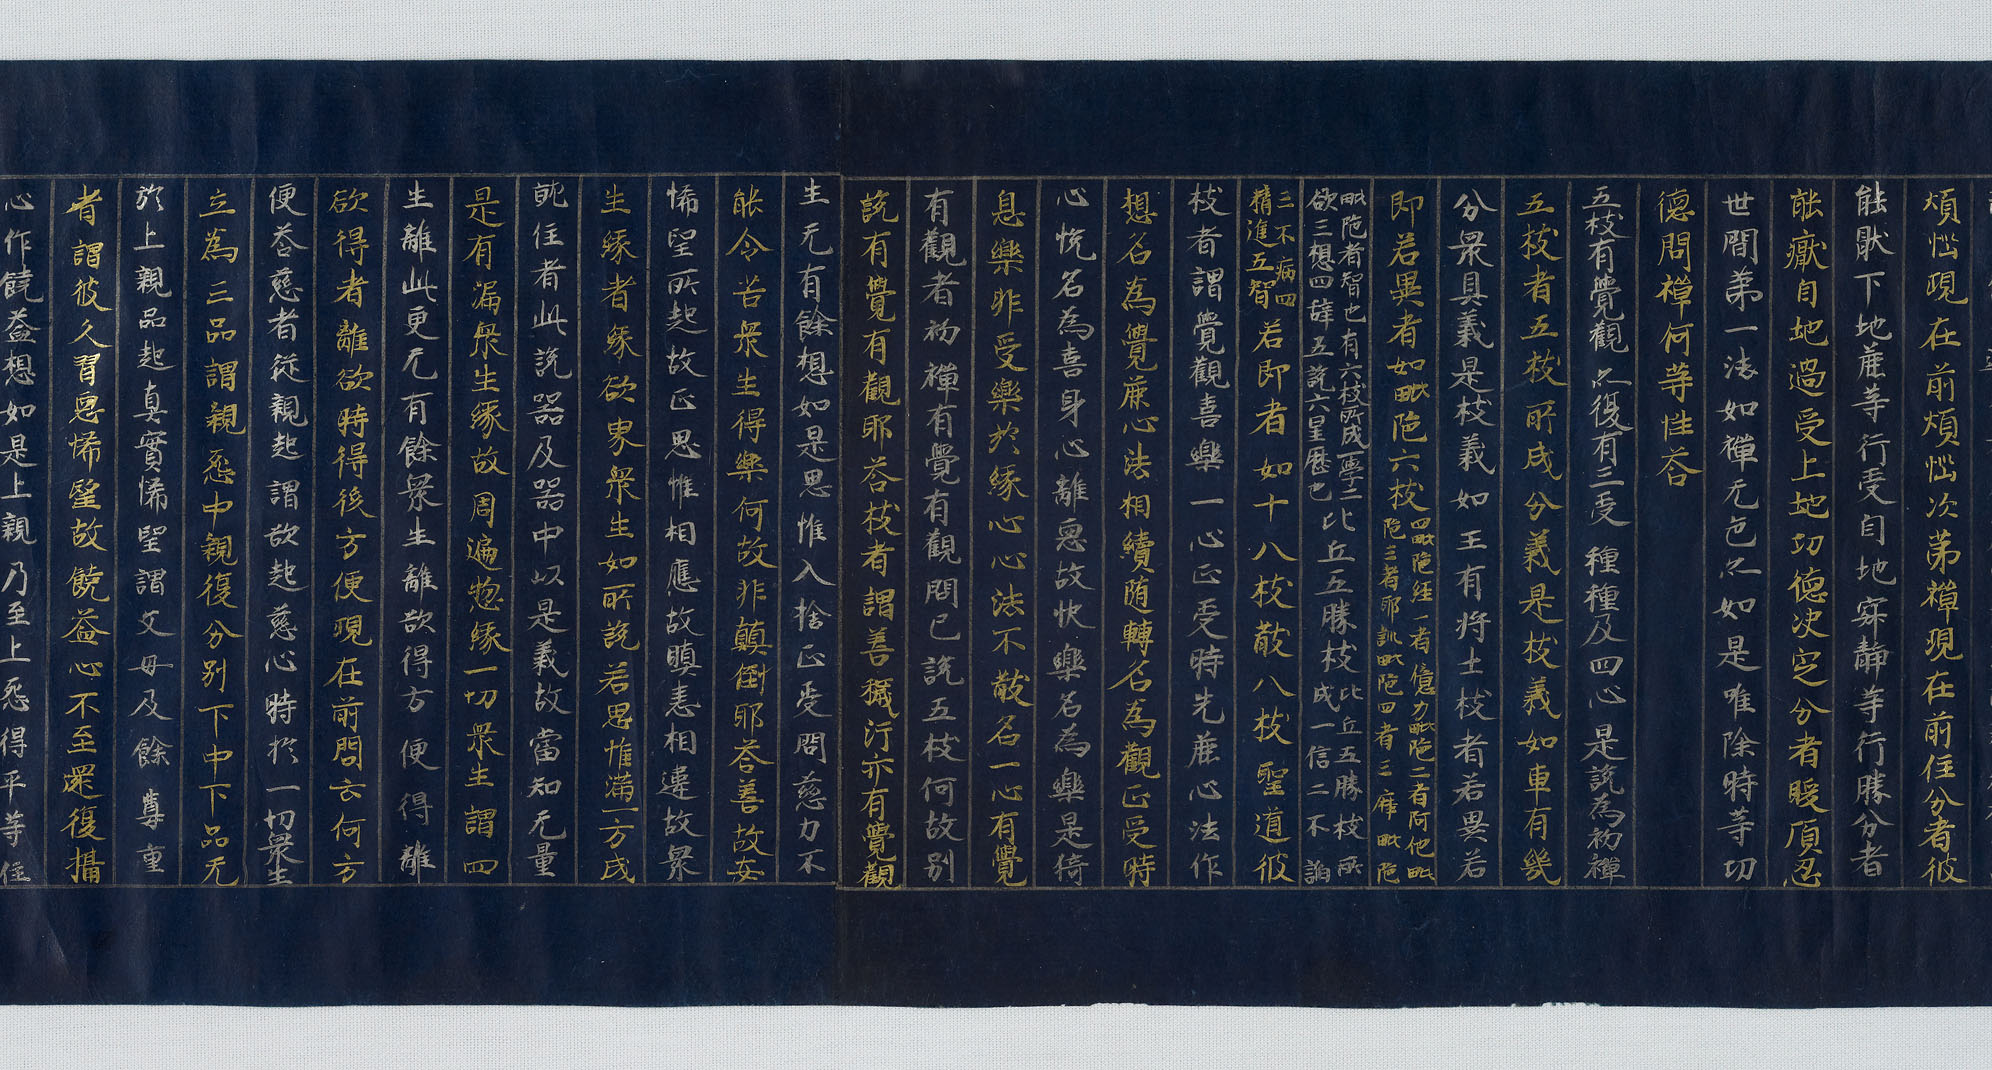 煩惱現在前煩惱次第禪現在前住分者彼
能猒下地麁等行受自地寂靜等行勝分者
能猒自地過受上地功德决定分者暖頂忍
世間第一法如禪无色亦如是唯除時等功
德問禪何等性荅
五枝有覺觀 亦復有三受 種種及四心 是說為初禪
五枝者五枝所成分義是枝義如車有幾
分衆具義是枝義如王有將士枝者若異若
即若異者如毗陁六枝四毗陁經一者億力毗陁二者阿他毗陁三者耶訓毗陁四者三摩毗陁
毗陁者智也有六枝所成一學二欲三想四辞五說六星曆也比丘五勝枝比丘五勝枝所成一信二不諂
三不病四精進五智若即者如十八枝散八枝聖道彼
枝者謂覺觀喜樂一心正受時先麁心法作
想名為覺麁心法相續随轉名為觀正受時
心悅名為喜身心離惡故快樂名為樂是猗
息樂非受樂於緣心心法不散名一心有覺
有觀者初禪有覺有觀問已說五枝何故別
說有覺有觀耶荅枝者謂善穢汙亦有覺觀
生无有餘想如是思惟入捨正受問慈力不
能令苦衆生得樂何故非顛倒耶荅善故安
悕望所起故正思惟相應故瞋恚相違故衆
生緣者緣欲界衆生如所說若思惟滿一方成
就住者此說器及器中以是義故當知无量
是有漏衆生緣故周遍惣緣一切衆生謂四
生離此更无有餘衆生離欲得方便得離
欲得者離欲時得後方便現在前問云何方
便荅慈者從親起謂欲起慈心時於一切衆生
立為三品謂親怨中親復分別下中下品无
於上親品起真實悕望謂父母及餘尊重
者謂彼久習惡悕望故饒益心不至還復攝
心作饒益想如是上親乃至上怨得平等住